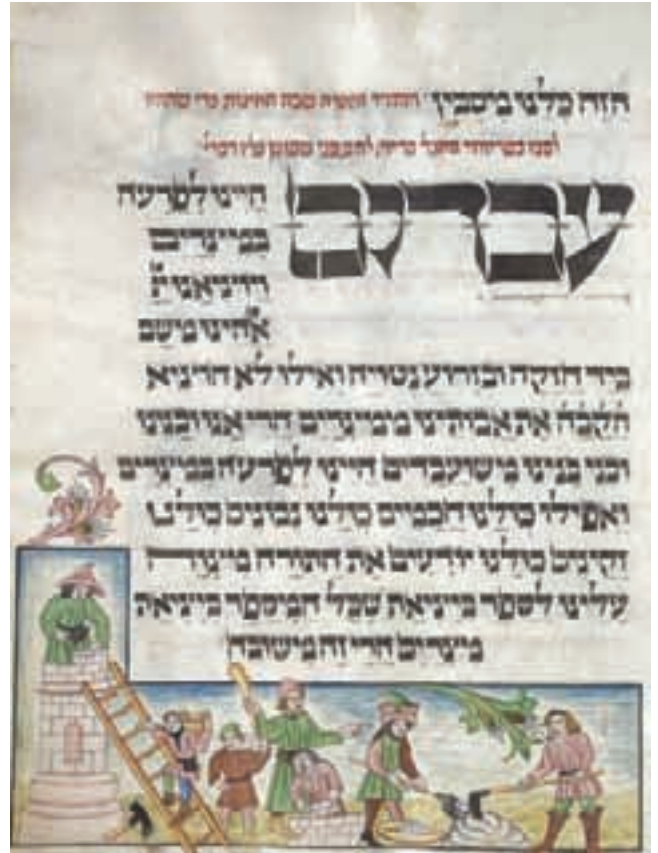 הזה כלנו מיסבין
עבדים
היינו לפרעה
במיצרים
ויוציאנו יי
אלהינו מישם
ביד חזקה ובזרוע נטויה ואילו לא הוציא
הקבה את אבותינו ממיצרים הרי אנו ובנינו
ובני בנינו מישועבדים היינו לפרעה במיצרים
ואפילו כולנו חכמים כולנו נבונים כולנו
זקינים כולנו יודעים את התורה מיצוה
עלינו לספר ביציאת שכל המיספר ביציאת
מיצרים הרי זה מישובח